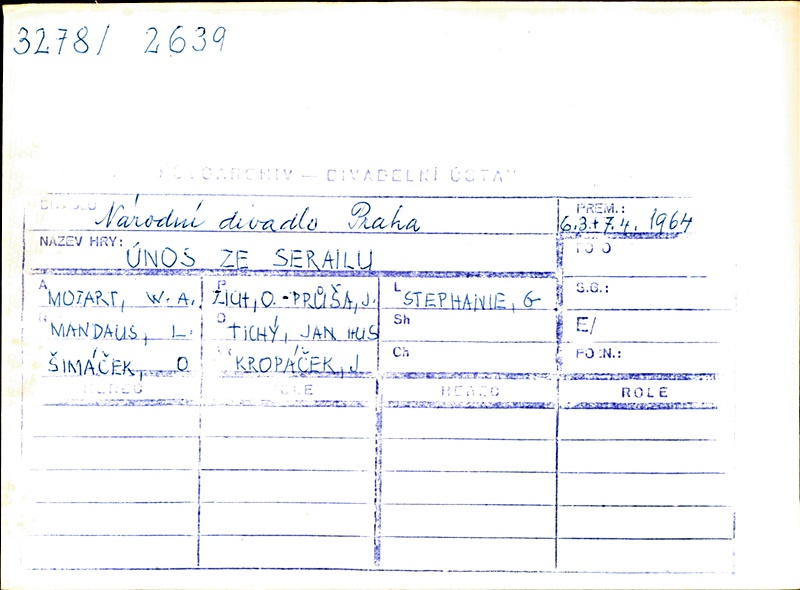 3278/ 2639
FOTOARCHIV — DIVADELNÍ ÚSTAV
DIVADLO Národní divadlo Praha PREM.: 6.3.+7.4. 1964
NÁZEV HRY: ÚNOS ZE SERAILU FOTO
A MOTART, W.A. P ŽICH, O.-PRŮŠA, J. L STEPHANIE, G S.G.:
R MANDAUS, L. D TICHÝ, JAN HUS Sh E/
ŠIMÁČEK, O KROPÁČEK, J Ch FO.N.:
HEREC ROLE HEREC ROLE